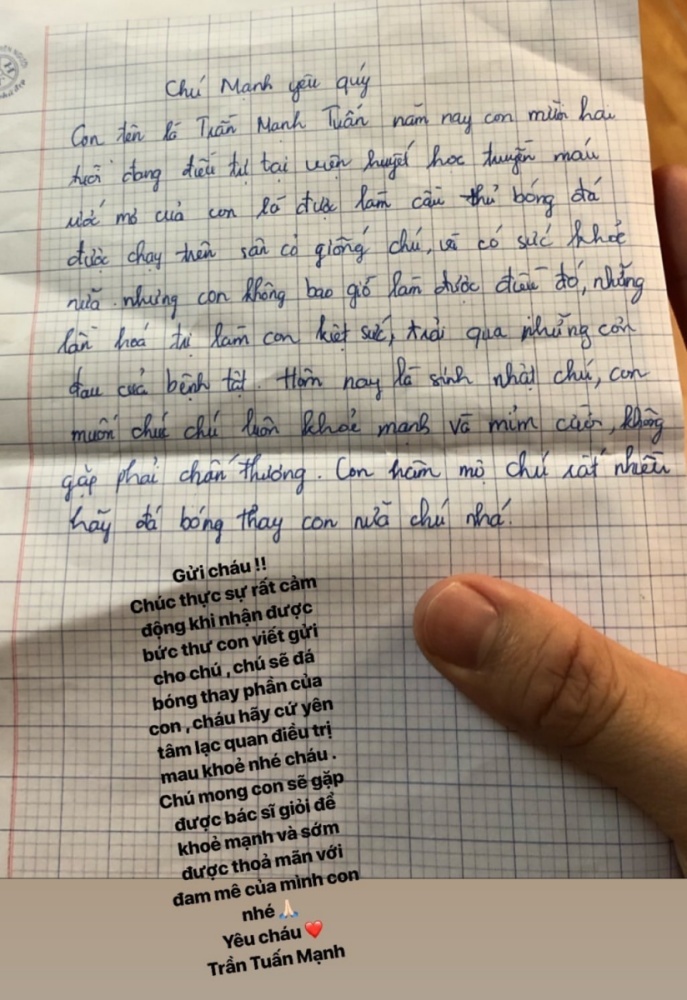 Chú Mạnh yêu quý
Con tên là Trần Mạnh Tuấn năm nay con mười hai
tuổi đang điều trị tại viện huyết học truyền máu
ước mơ của con là được làm cầu thủ bóng đá
được chạy trên sân cỏ giống chú, và có sức khoẻ
nữa. nhưng con không bao giờ làm được điều đó, những
lần hoá trị làm con kiệt sức, trải qua những cơn
đau của bệnh tật. Hôm nay là sinh nhật chú, con
muốn chúc chú luôn khoẻ mạnh và mỉm cười, không
gặp phải chấn thương. Con hâm mộ chú rất nhiều
hãy đá bóng thay con nữa chú nhá.
Gửi cháu !!
Chúc thực sự rất cảm
động khi nhận được
bức thư con viết gửi
cho chú , chú sẽ đá
bóng thay phần của
con , cháu hãy cứ yên
tâm lạc quan điều trị
mau khoẻ nhé cháu .
Chú mong con sẽ gặp
được bác sĩ giỏi để
khoẻ mạnh và sớm
được thoả mãn với
đam mê của mình con
nhé 🙏🏻
Yêu cháu ❤️
Trần Tuấn Mạnh